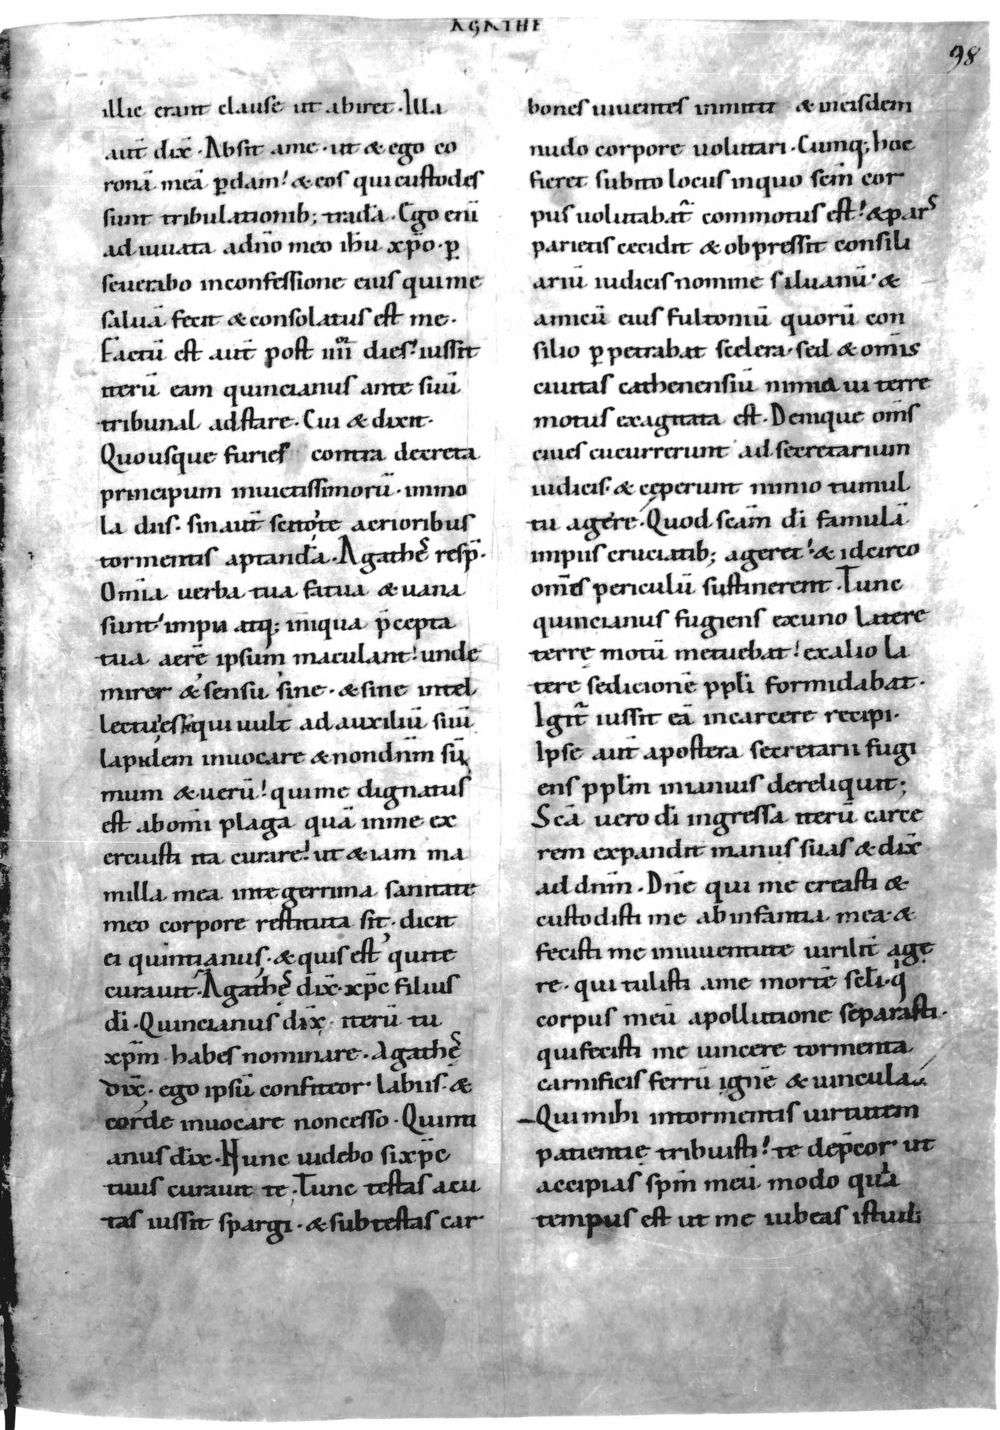 AGATHE
98
illic erant clause ut abiret. Illa
aut̄ dix̄. Absit ame. ut & ego co
ronā meā p̱dam! & eos qui custodes
sunt tribulationib; tradā. Ego eni̅
adiuuata adn̄o meo ih̄u xp̄o. p̱
seuerabo inconfessione eius qui me
saluā fecit & consolatus est me.
Factū est aut̄ post iiii dies! iussit
iterū eam quincianus ante suū
tribunal adstare. Cui & dixit.
Quousque furies contra decreta
principum inuictissimorū. immo
la diis. sin aut̄ scito te acrioribus
tormentis aptandā. Agathę resp̄.
Om̄ia uerba tua fatua & uana
sunt! impii atq; iniqua p̄cepta
tua aerē ipsum maculant! unde
miser & sensu sine. & sine intel
lectu es! qui uult ad auxiliū suū
lapidem inuocare & non dn̄m sū
mum & uerū! qui me dignatus
est ab om̄i plaga quā inme ex
ercuisti ita curare! ut & iam ma
milla mea integerrima sanitate
meo corpore restituta sit. dicit
ei quintianus. & quis est qui te
curauit. Agathę dix̄. xp̄c filius
dī. Quincianus dix̄. iterū tu
xp̄m habes nominare. Agathę
dix̄. ego ipsū confiteor labiis. &
corde inuocare non cesso. Quinti
anus dix̄. Hunc uidebo si xp̄c
tuus curauit te. Tunc testas acu
tas iussit spargi. & sub testas car
bones uiuentes inmitti & in eisdem
nudo corpore uolutari. Cumq; hoc
fieret subito locus inquo sc̄m cor
pus uolutabat̄ commotus est! & pars
parietis cecidit & obpressit consili
ariū iudicis nomine siluanū! &
amicū eius fultoniū quorū con
silio p̱petrabat scelera. sed & om̄is
ciuitas cathenensiū nimia ui terre
motus exagitata est. Denique om̄s
ciues cucurrerunt ad secretarium
iudicis. & cęperunt nimio tumul
tu agere. Quod sc̄am dī famulā
impiis cruciatib; ageret! & idcirco
om̄es periculū sustinerent. Tunc
quincianus fugiens ex uno latere
terrę motū metuebat! ex alio la
tere sedicionē pp̄li formidabat.
Igit̄ iussit eā in carcere recipi.
Ipse aut̄ apostera secretarii fugi
ens pp̄lm in ianuis dereliquit;
Sc̄a uero dī ingressa iterū carce
rem expandit manus suas & dix̄
ad dn̄m. Dn̄e qui me creasti &
custodisti me ab infantia mea. &
fecisti me iniuuentute uirilit̄ age
re. qui tulisti ame morē sc̄li. q
corpus meū apollutione separasti.
qui fecisti me uincere tormenta
carnificis ferrū ignē & uincula.
Qui mihi intormentis uirtutem
patientię tribuisti! te dep̄cor ut
accipias sp̄m meū. modo quia
tempus est ut me iubeas istud